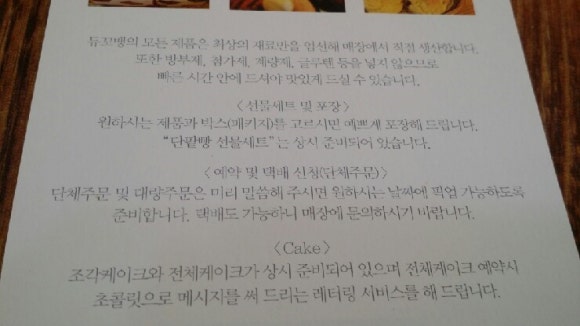 듀꼬뺑의 모든 제품은 최상의 재료만을 엄선해 매장에서 직접 생산합니다.
또한 방부제, 첨가제, 개량제, 글루텐 등을 넣지 않으므로
빠른 시간 안에 드셔야 맛있게 드실 수 있습니다.
〈선물세트 및 포장〉
원하시는 제품과 박스(패키지)를 고르시면 예쁘게 포장해 드립니다.
“단팥빵 선물세트”는 상시 준비되어 있습니다.
〈예약 및 택배 신청(단체주문)〉
단체주문 및 대량주문은 미리 말씀해 주시면 원하시는 날짜에 픽업 가능하도록
준비합니다. 택배도 가능하니 매장에 문의하시기 바랍니다.
〈Cake〉
조각케이크와 전체케이크가 상시 준비되어 있으며 전체케이크 예약시
초콜릿으로 메시지를 써 드리는 레터링 서비스를 해 드립니다.